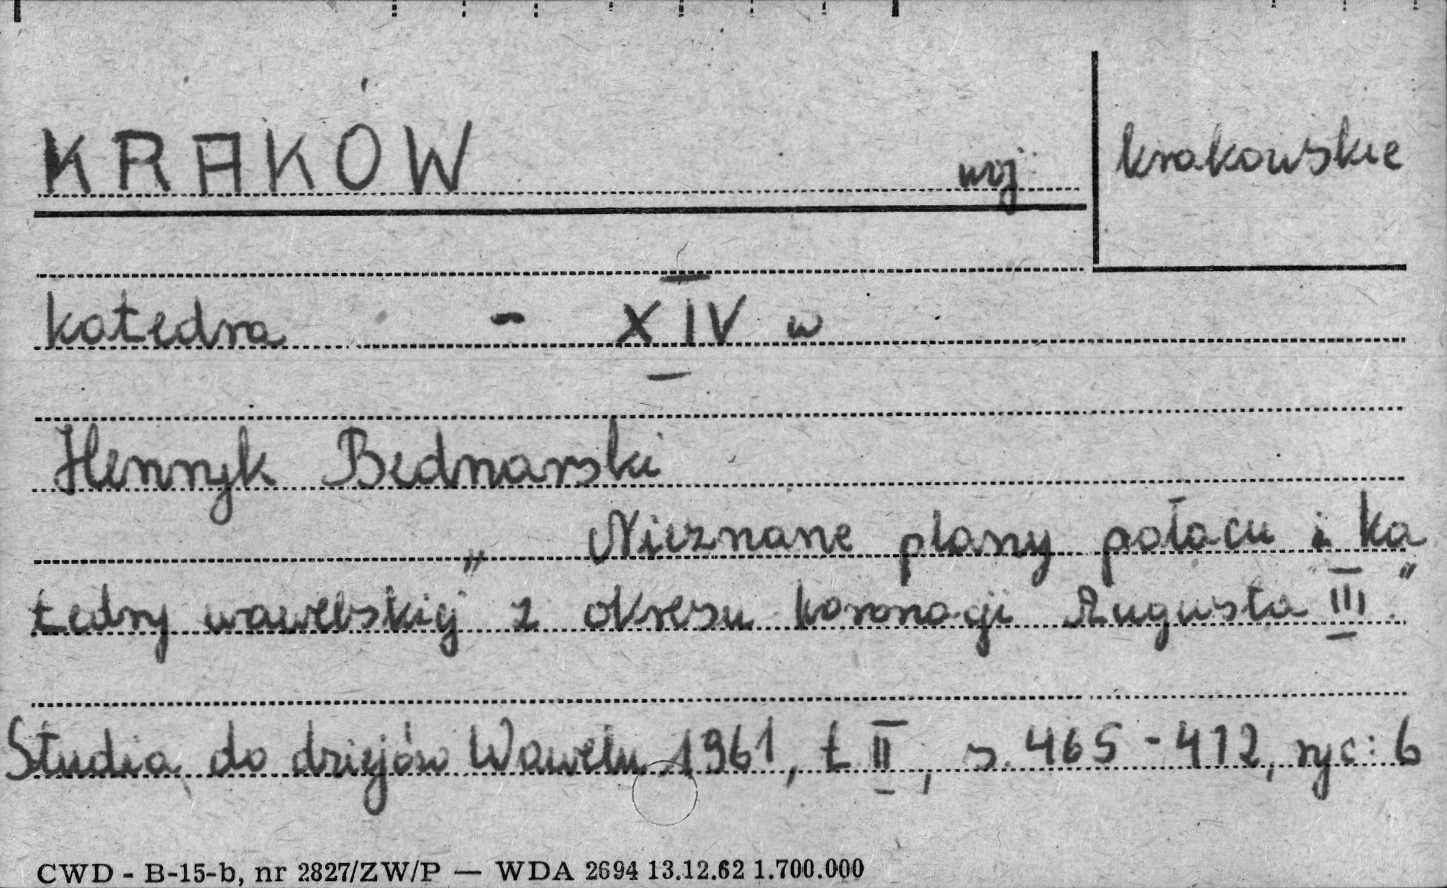 KRAKÓW woj. krakowskie
katedra - XIV w
Henryk Bednarski
„Nieznane plany pałacu i ka
tedry wawelskiej z okresu koronacji Augusta III."
Studia do dziejów Wawelu 1961, t II, s. 465-472, ryc: 6
CWD - B-15-b, nr 2827/ZW/P — WDA 2694 13.12.62 1.700.000